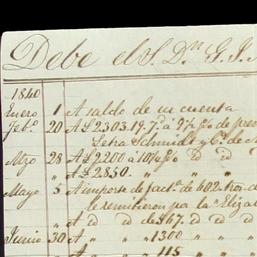 Debe el S. Dn. G. J.
1840
Enero 1 A saldo de su cuenta
Feb.º 20 A £2303.19.7 a 9½ p% de
Letra Schmidt y C.ª de
Mzo 28 A £2200 a 10 p% D D D
„ „ A £2850. „ „ „
Mayo 5 A importe de fact.ª de 602
le remitieron por la
„ „ A D D de 867. D D
Junio 30 A „ „ 1300 „ „
„ A „ „ 115 „